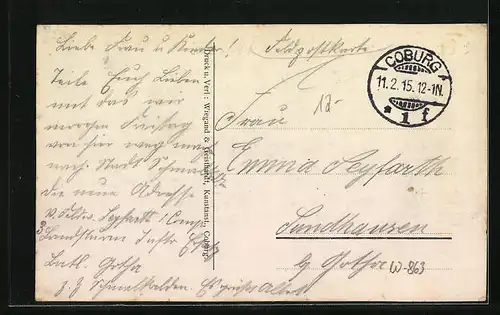 Liebe Frau u Kinder!
Teile Euch Lieben
mit das wir
morgen Freitag
von hier weg
nach Stadt Schmalkalden
die neue Adresse
W. Seyfarth
Landsturm Inftr
Batl. Gotha
z. Z Schmalkalden. Es grüsst Alle
Druck u. Verl.: Wiegand & Kunstanst., Coburg.
Feldpostkarte
COBURG
11.2.15.12-1N.
* 1 f
12-
Frau
Emma Seyfarth
Sundhausen
b/ Gotha
W-863